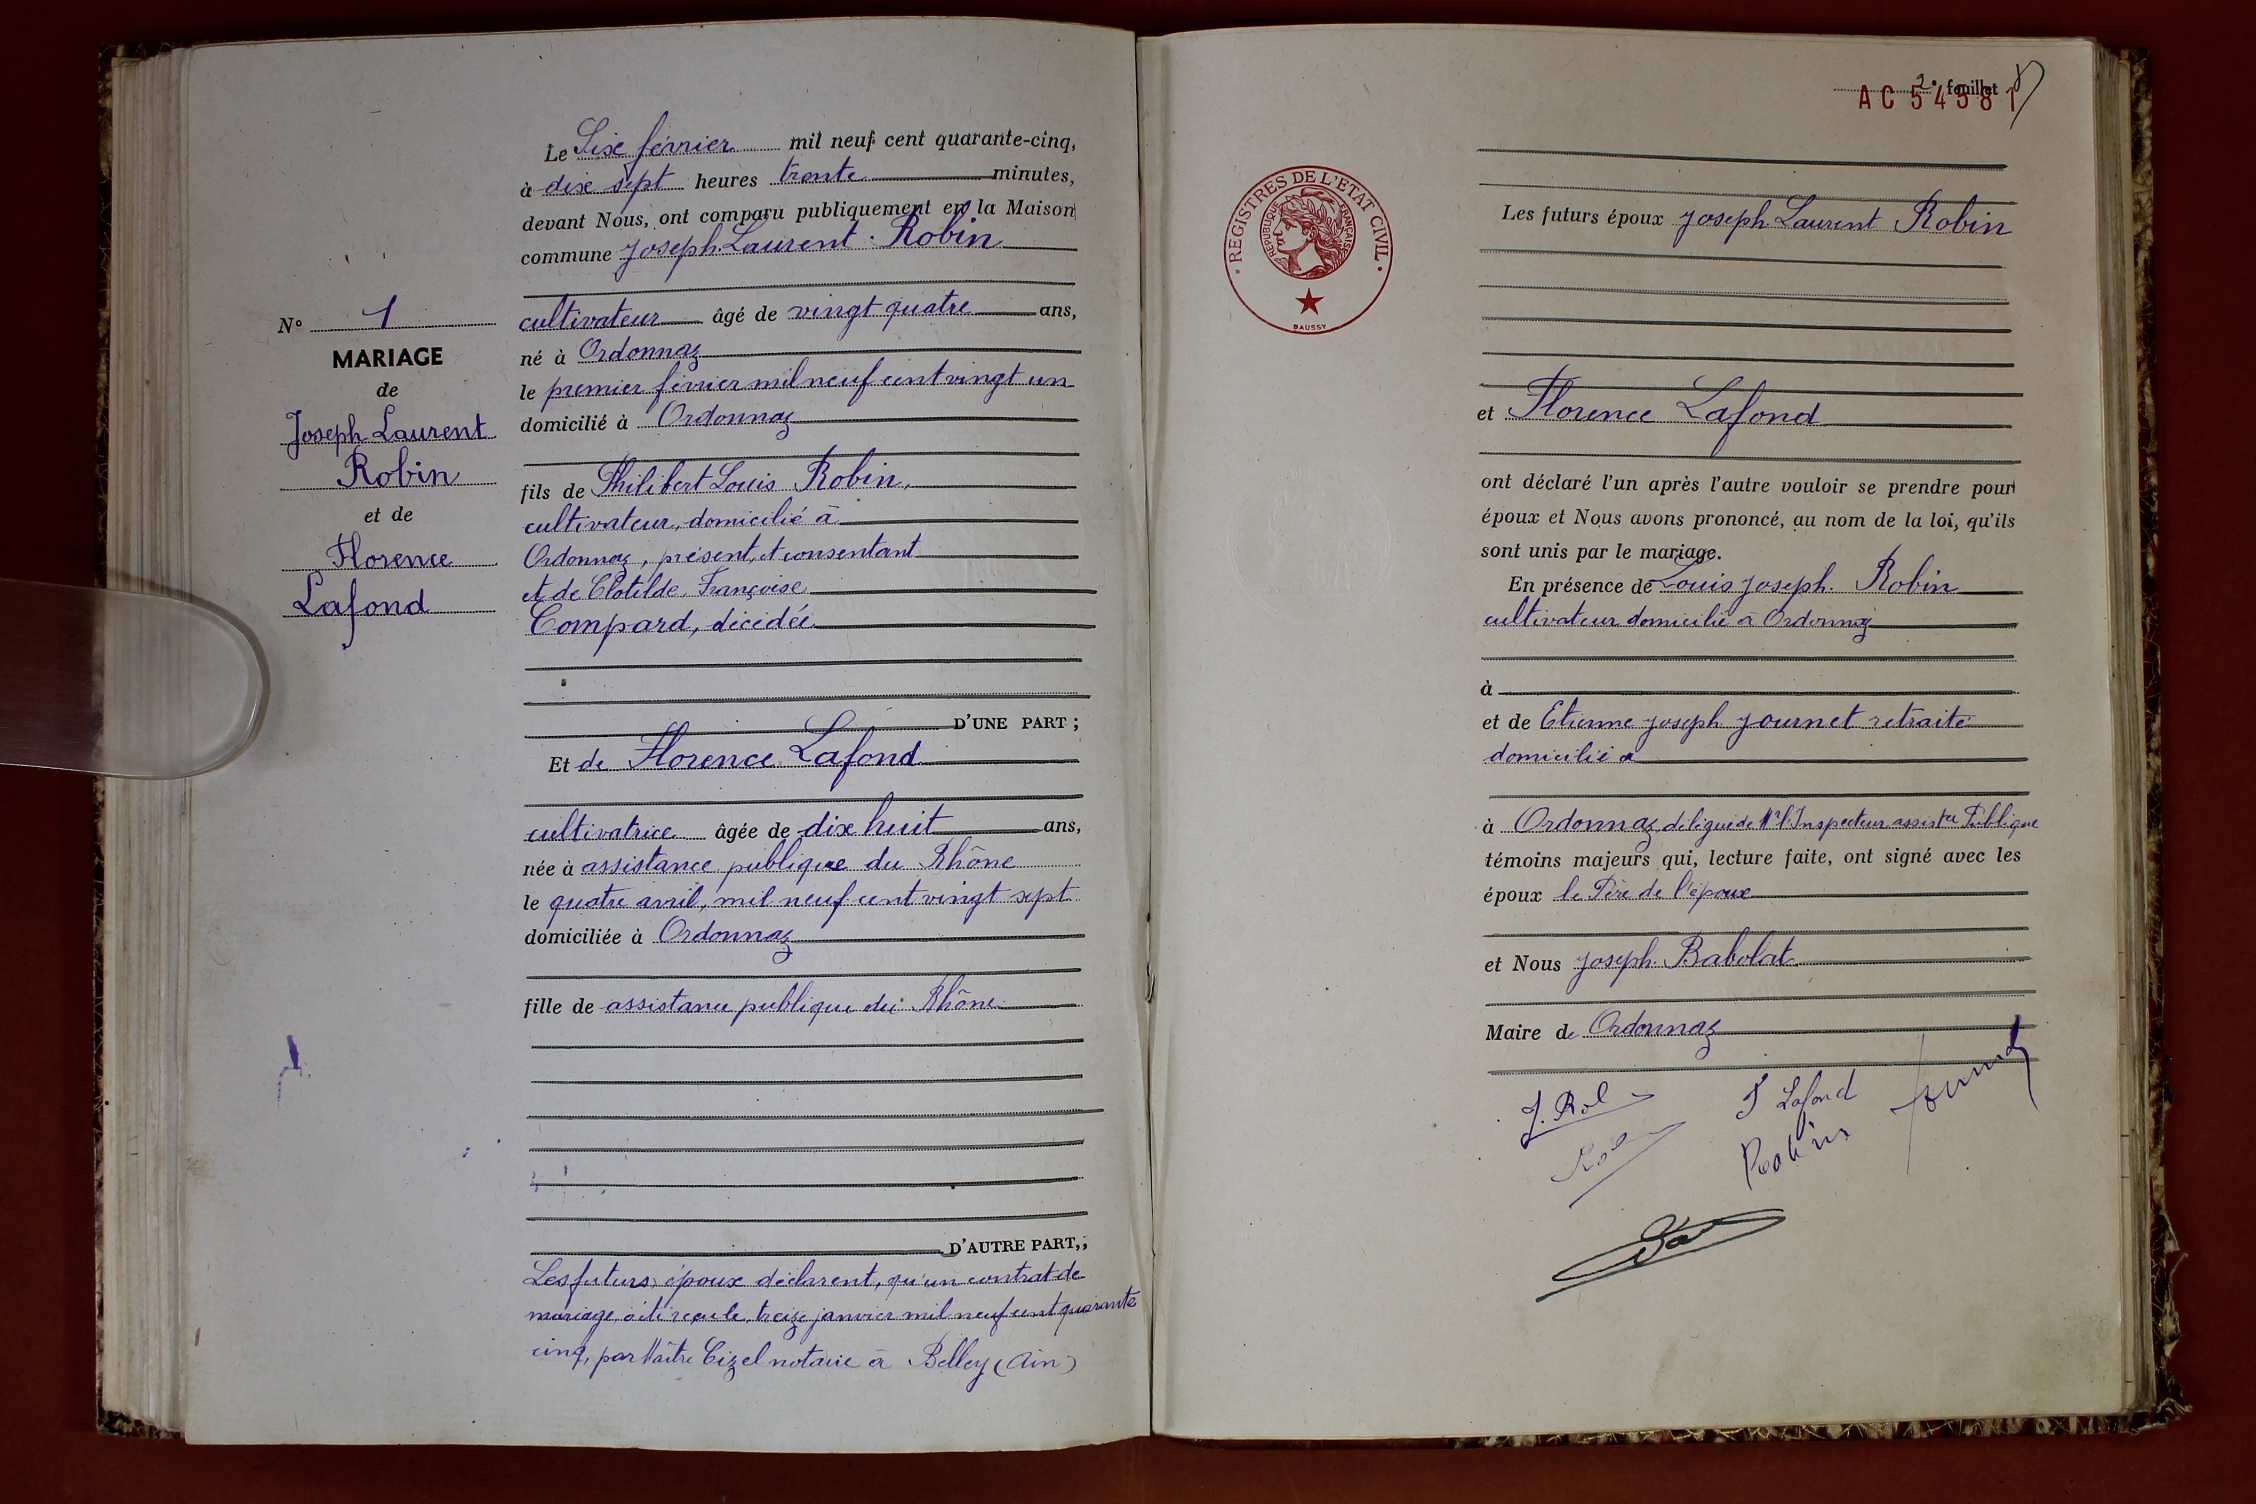 Le Six février mil neuf cent quarante-cinq,
à dix sept heures trente minutes,
devant Nous, ont comparu publiquement en la Maison
commune Joseph Laurent Robin
cultivateur âgé de vingt quatre ans,
né à Ordonnaz
le premier février mil neuf cent vingt un
domicilié à Ordonnaz
fils de Philibert Louis Robin,
cultivateur, domicilié à
Ordonnaz, présent, et consentant
et de Clotilde, Françoise
Compard, décédée
D'UNE PART ;
Et de Florence Lafond
cultivatrice âgée de dix huit ans,
née à assistance publique du Rhône
le quatre avril, mil neuf cent vingt sept
domiciliée à Ordonnaz
fille de assistance publique du Rhône
D'AUTRE PART,;
Les futurs époux déclarent, qu'un contrat de
mariage a été reçu le treize janvier mil neuf cent quarante
cinq, par Maître Cizel notaire à Belley (Ain)
N° 1
MARIAGE
de
Joseph Laurent
Robin
et de
Florence
Lafond
2e feuillet
AC 54581
REGISTRES DE L'ETAT CIVIL
REPUBLIQUE FRANÇAISE
BAUSSY
Les futurs époux Joseph Laurent Robin
et Florence Lafond
ont déclaré l'un après l'autre vouloir se prendre pour
époux et Nous avons prononcé, au nom de la loi, qu'ils
sont unis par le mariage.
En présence de Louis Joseph Robin
cultivateur domicilié à Ordonnaz
à
et de Etienne Joseph Journet retraité
domicilié à
à Ordonnaz délégué de Mr l'Inspecteur assistce Publique
témoins majeurs qui, lecture faite, ont signé avec les
époux le Père de l'époux
et Nous Joseph Babolat
Maire de Ordonnaz
F Lafond
Robin